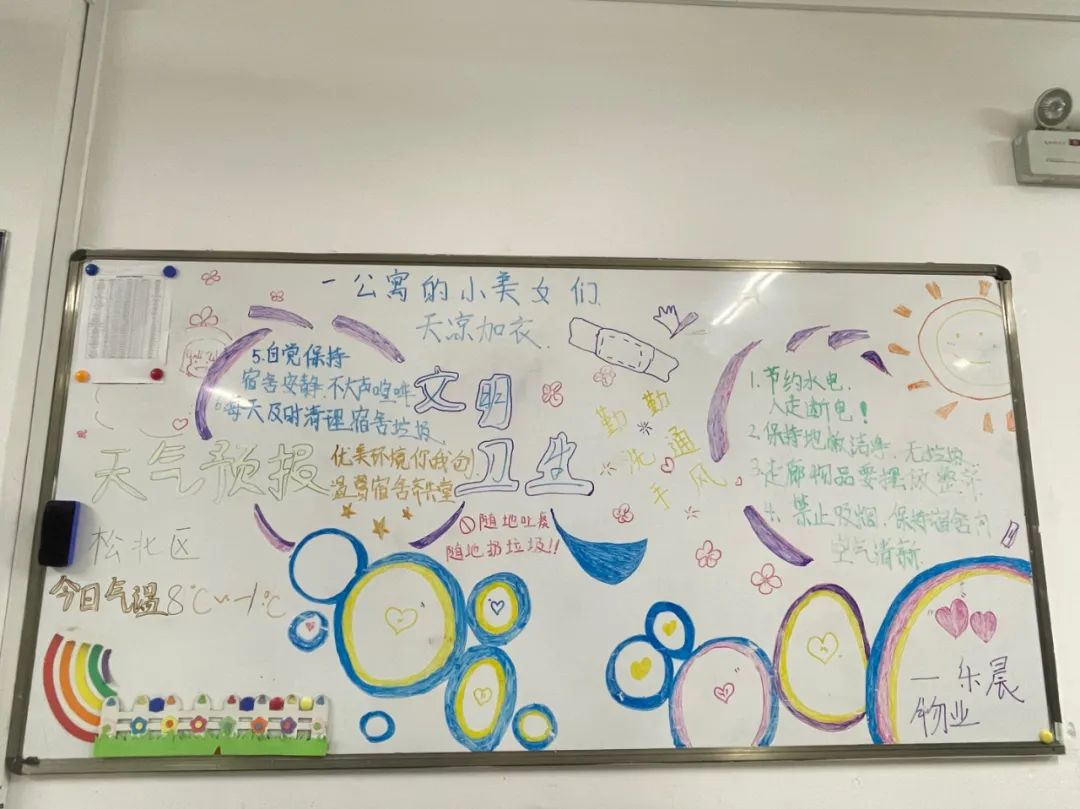 一公寓的小美女们
天凉加衣.
5.自觉保持
宿舍安静.不大声喧哗
6.每天及时清理宿舍垃圾.
文明
卫生
天气预报
优美环境你我创
温馨宿舍
松北区
今日气温8℃~-1℃
①随地吐痰
随地扔垃圾!!
勤洗手
勤通风
1.节约水电.
人走断电!
2.保持地面洁净.无垃圾
3.走廊物品要摆放整齐
4.禁止吸烟.保持宿舍内
空气清新.
一乐晨
物业